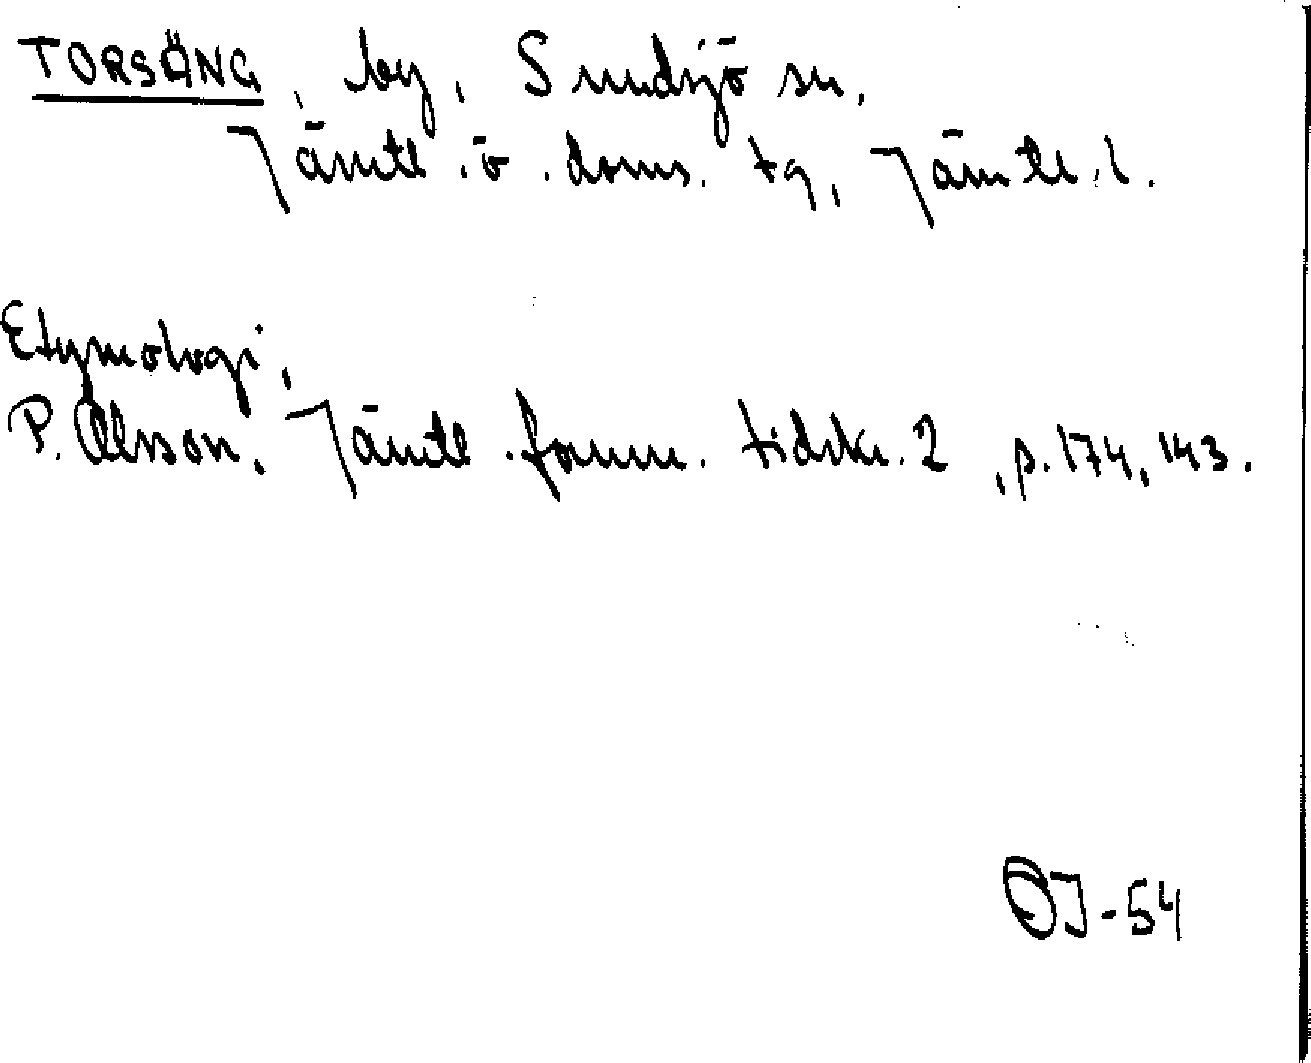 TORSÄNG, by, Sundsjö sn,
Jämtl. ö. doms. tg, Jämtl. l.
Etymologi,
P. Olsson, Jämtl. fornm. tidskr. 2, p. 174, 143.
ÖJ-54